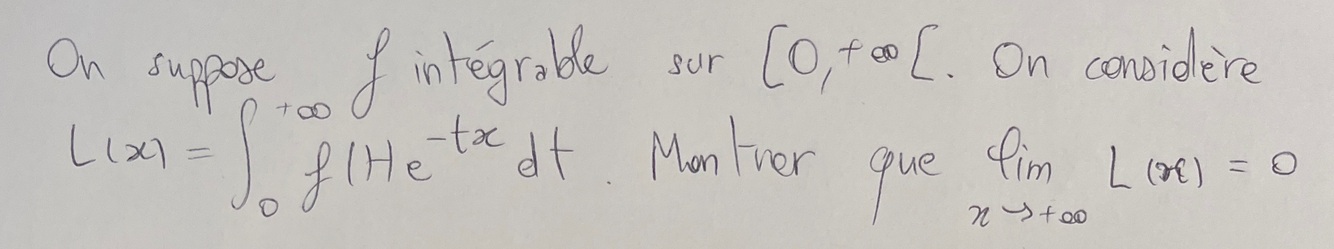 On suppose f intégrable sur [0,+∞[. On considère
L(x) = ∫₀^{+∞} f(t)e^{-tx} dt. Montrer que lim_{x→+∞} L(x) = 0